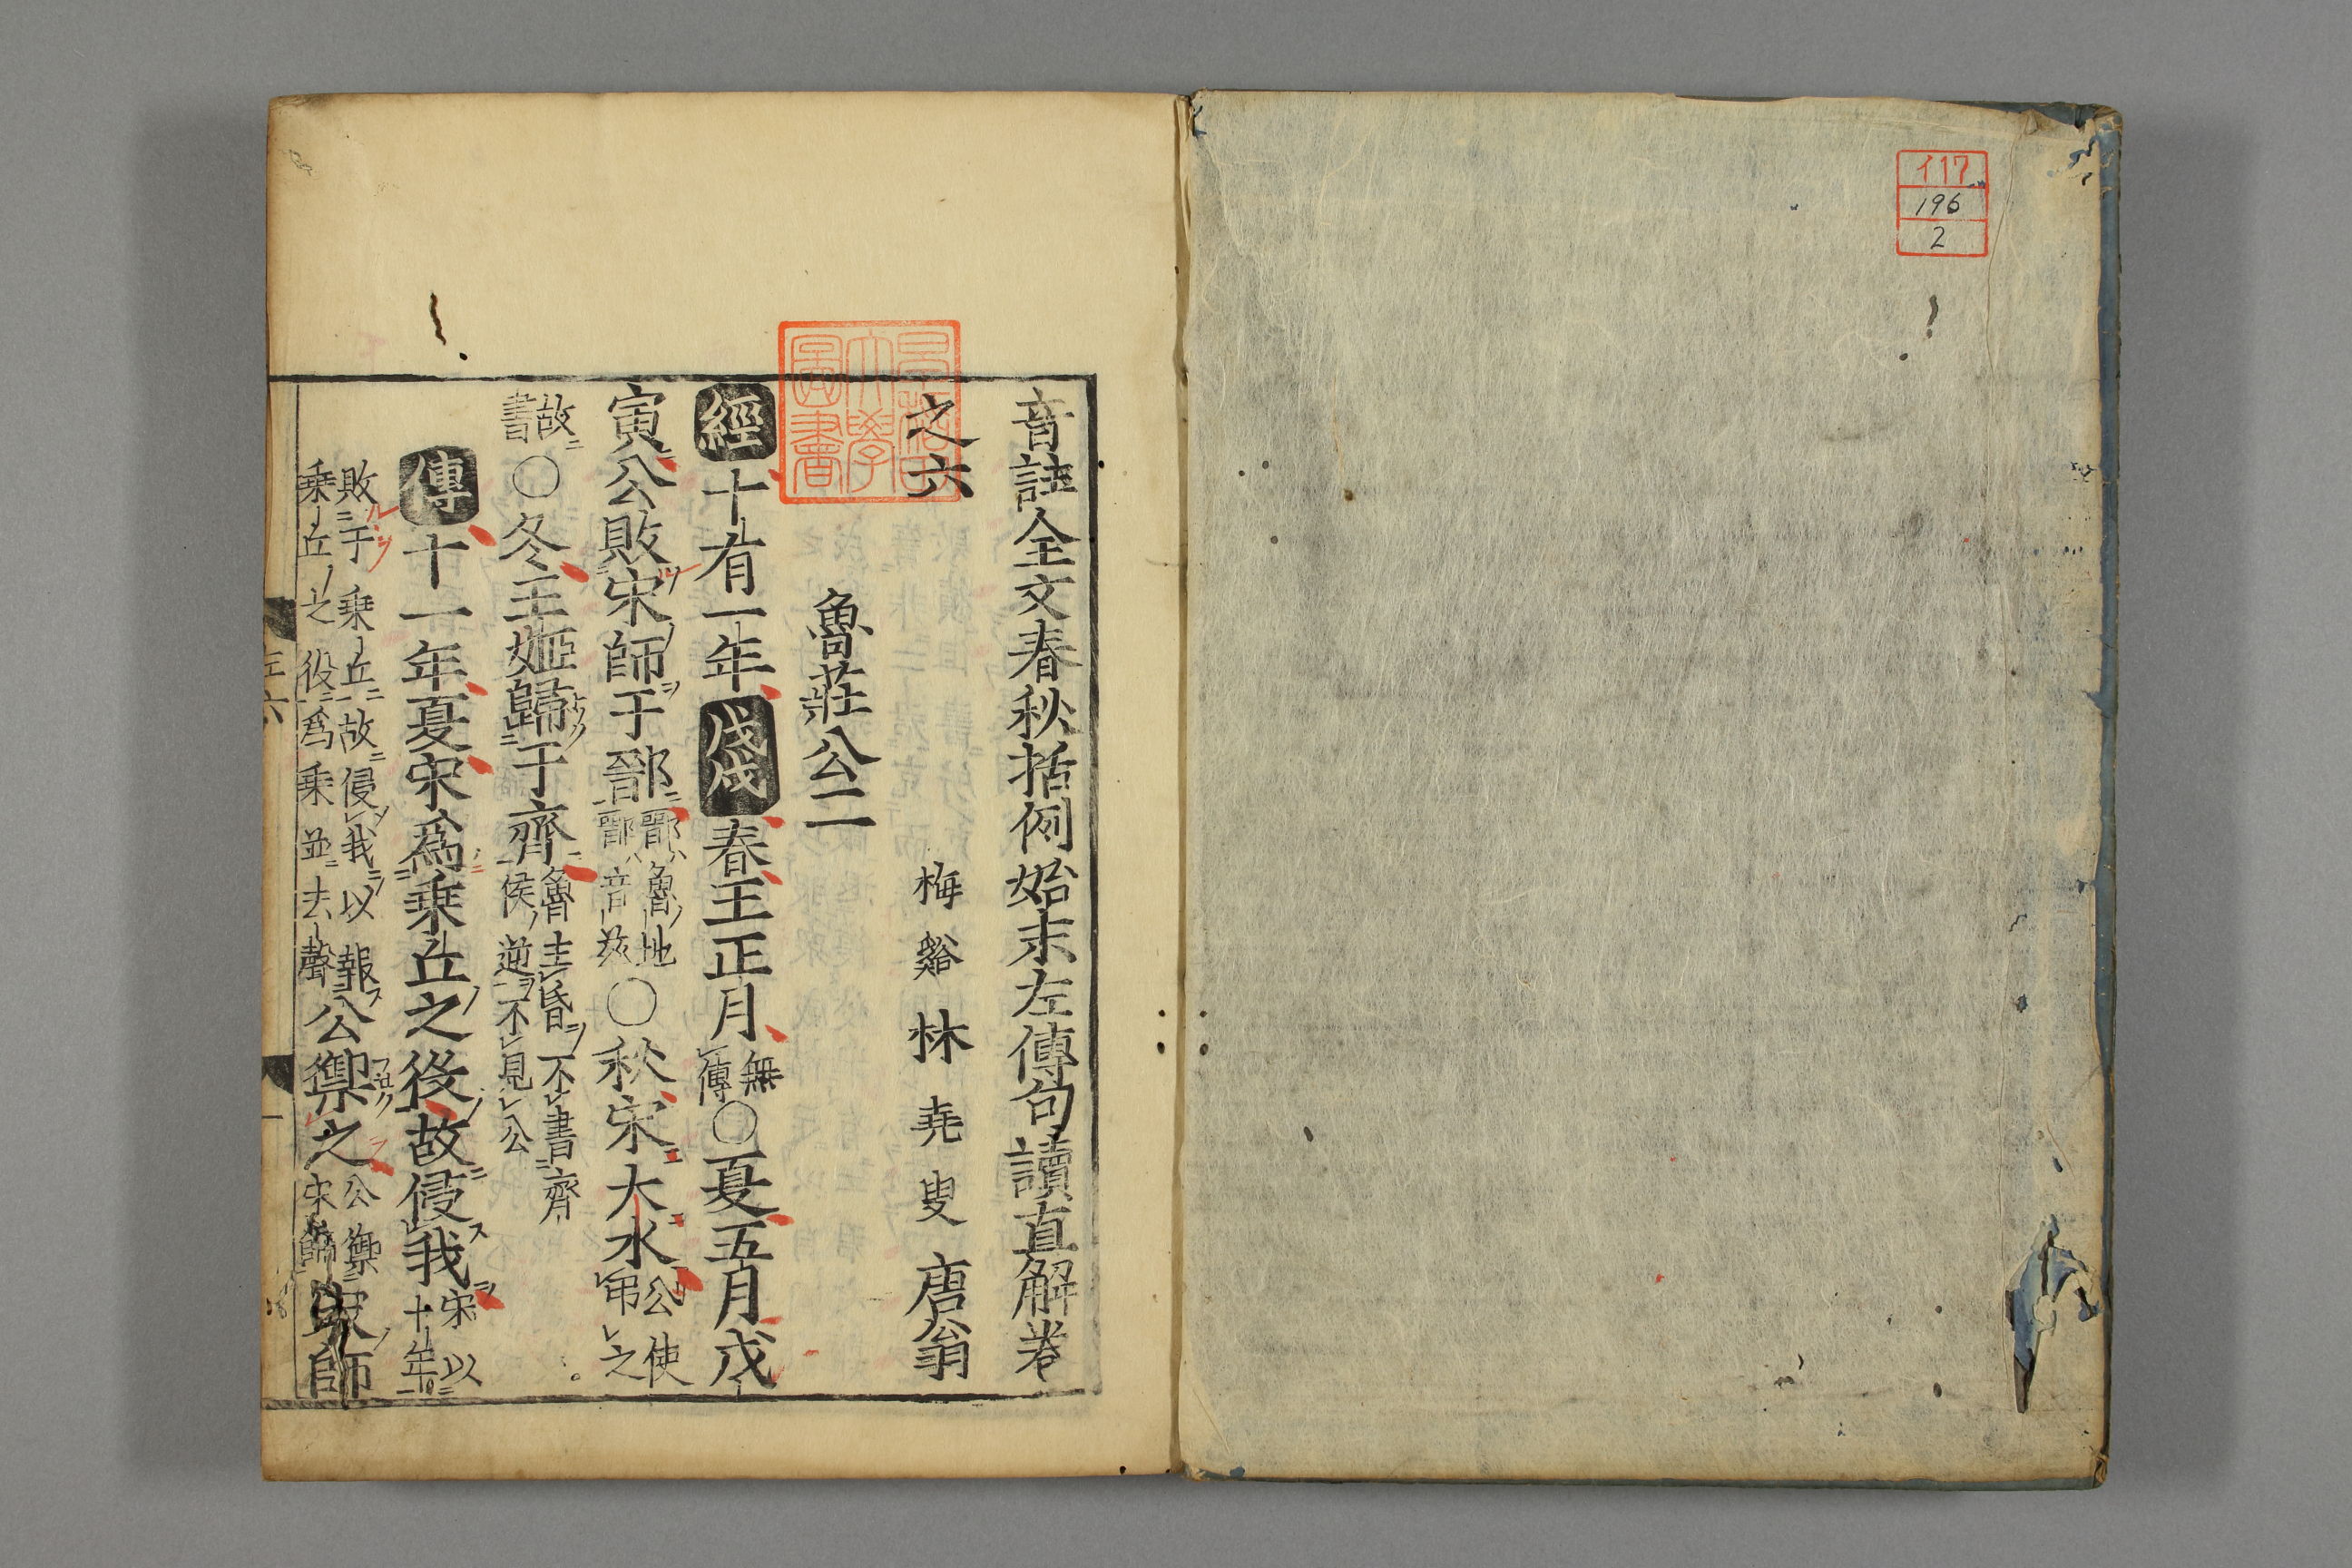 イ17
196
2
音註全文春秋括例始末左傳句讀直解卷
之六
梅谿林堯叟唐翁
魯莊公二
經十有一年戊戌春王正月無傳○夏五月戊
寅公敗宋師于鄑鄑魯地鄑音玆○秋宋大水公使弔之
故書○冬王姬歸于齊魯主昏不書齊侯逆不見公
傳十一年夏宋爲乗丘之役故侵我宋以十年
敗于乗丘故侵我以報乗丘之役爲乗並去聲公禦之公禦宋師宋師